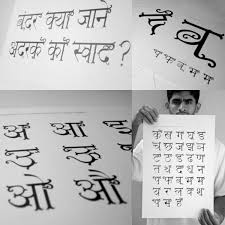 बंदर क्या जाने
अदरक का स्वाद ?
प फ ब भ म
अ आ
ओ औ
क ख ग घ ङ
च छ ज झ ञ
ट ठ ड ढ ण
त थ द ध न
प फ ब भ म
य र ल व श
ष स ह